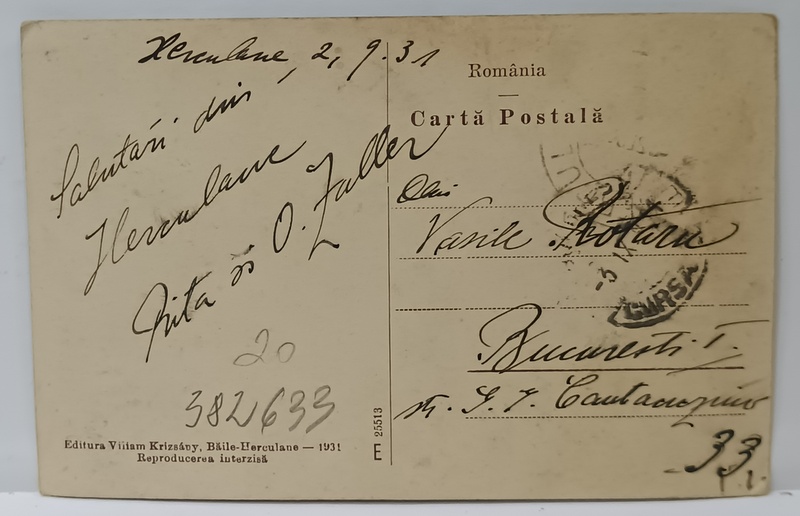 Herculane, 2, 9.31
Salutări din
Herculane
Rita și O. Zaller
20
382633
Editura Viliam Krizsány, Băile-Herculane — 1931
Reproducerea interzisă
E 25513
România
Cartă Poștală
Vasile Rotaru
București I.
str. G. G. Cantacuzino
33
CURSA